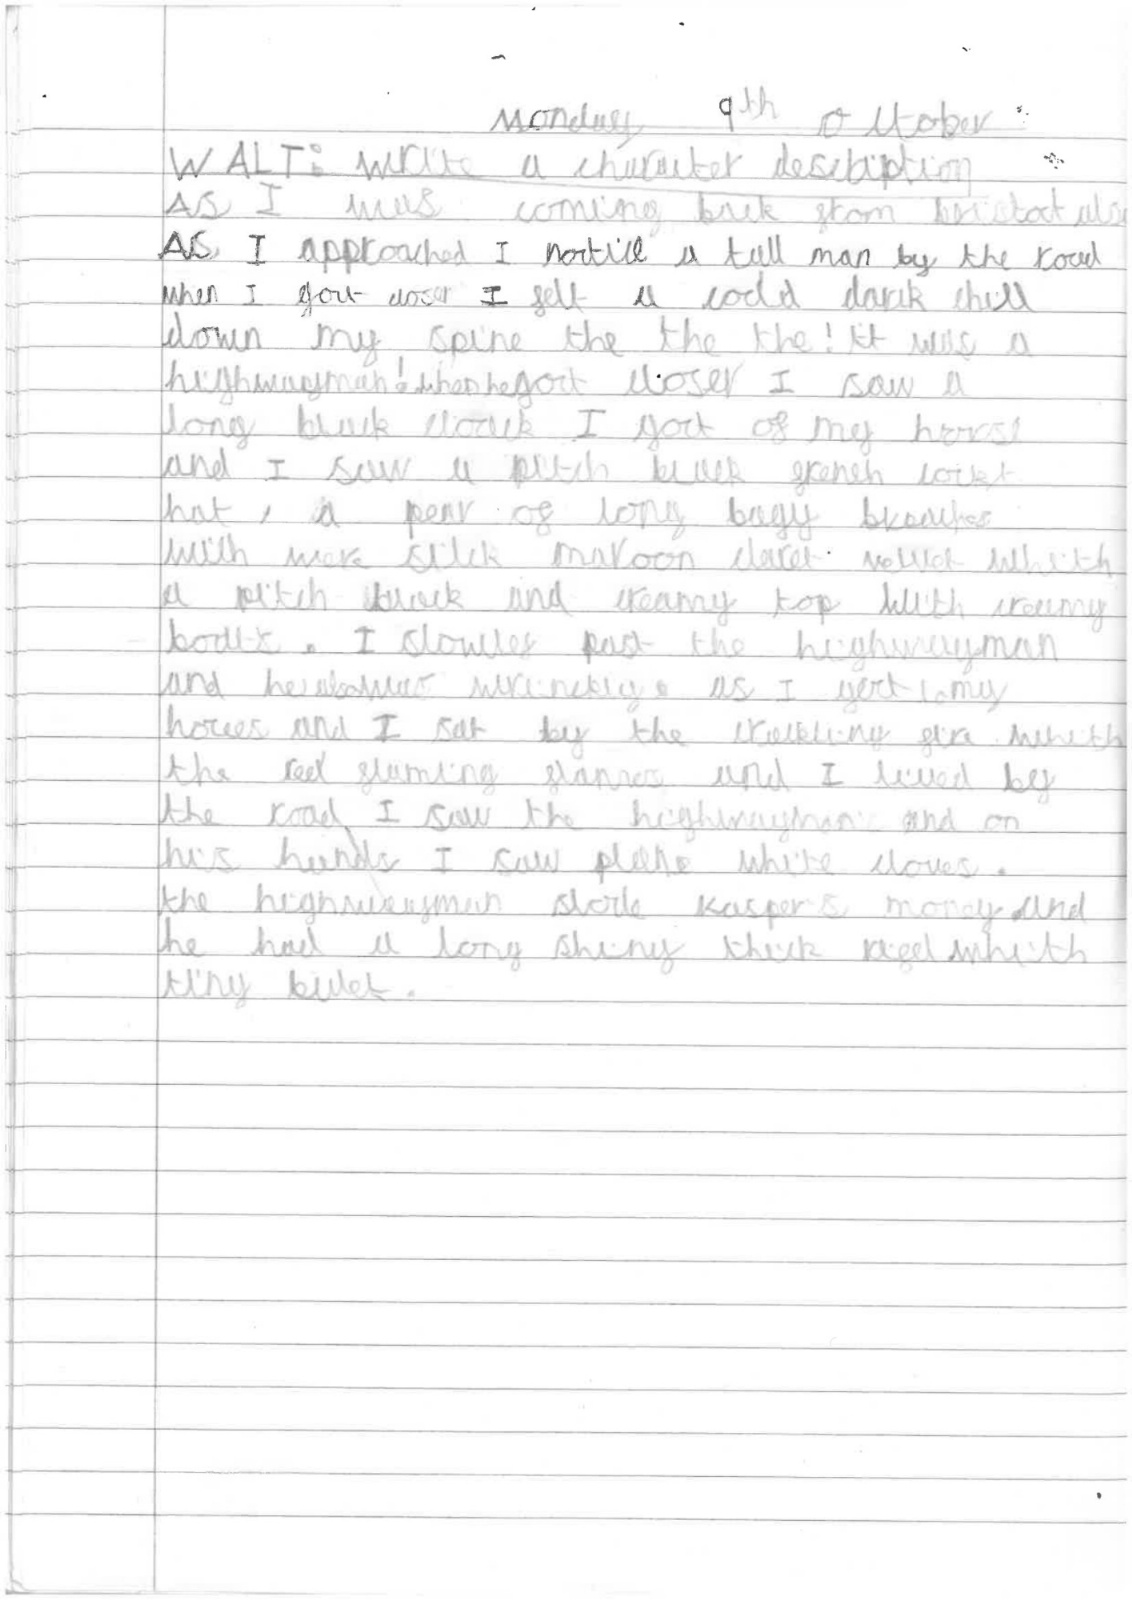 Monday 9th October
WALT: write a character description
AS I was coming back from bristol
AS I approached I nortice a tall man by the road
when I gort closer I felt a codd darck chill
down my spine the the the! it was a
highwayman! when he gort closer I saw a
long black cloack I gort of my horse
and I saw a pitch back french
hat, a pear of long bagy
with were silck maroon claret whith
a pitch black and creamy top with creamy
. I past the highwayman
and he as I my
horces and I sat by the crackling fire whith
the red flaming and I lived by
the road I saw the highwayman and on
his hands I saw white cloves.
the highwayman stole Kaspers money and
he had a long shiny thick whith
tiny bulet.